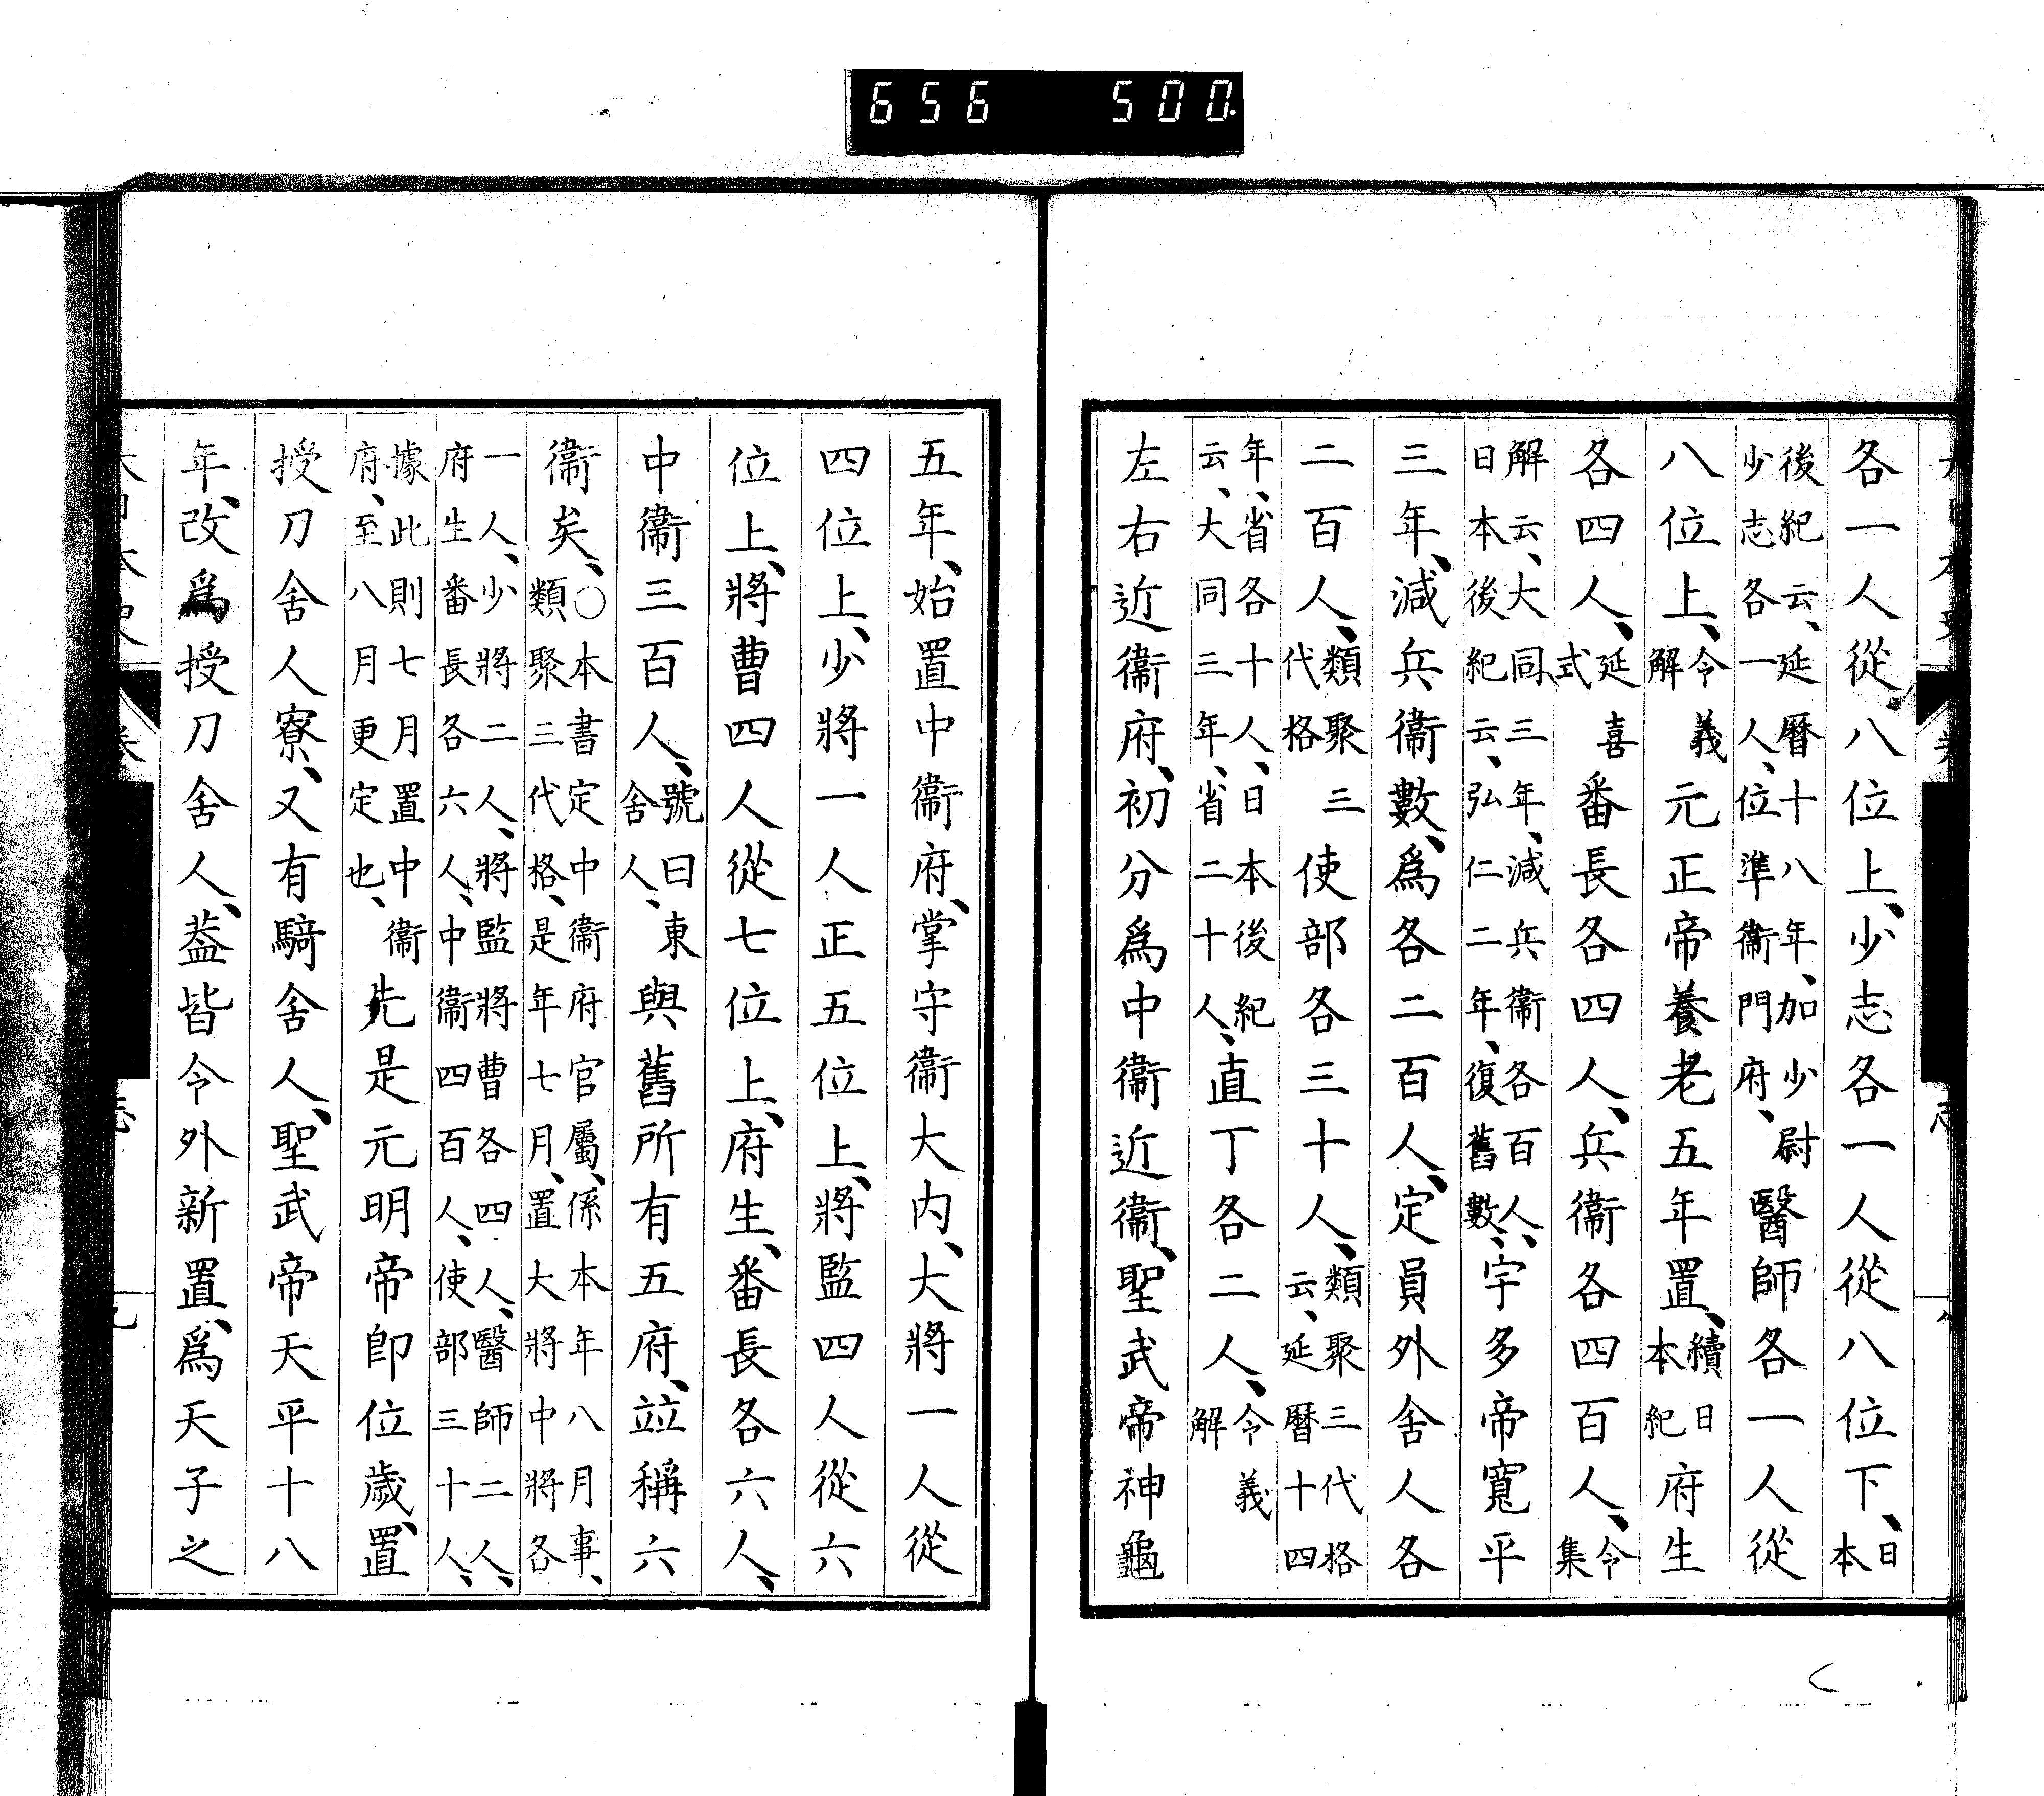 656 500.
各一人從八位上、少志各一人從八位下、日本
後紀云、延曆十八年、加少尉少志各一人、位準衞門府、醫師各一人從
八位上、令義解元正帝養老五年置、續日本紀府生
各四人、延喜式番長各四人、兵衞各四百人、令集
解云、大同三年、減兵衞各百人、日本後紀云、弘仁二年、復舊數、宇多帝寬平
三年、減兵衞數、爲各二百人、定員外舍人各
二百人、類聚三代格使部各三十人、類聚三代格云、延曆十四
年、省各十人、日本後紀云、大同三年、省二十人、直丁各二人、令義解
左右近衞府、初分爲中衞近衞、聖武帝神龜
五年、始置中衞府、掌守衞大内、大將一人從
四位上、少將一人正五位上、將監四人從六
位上、將曹四人從七位上、府生、番長各六人、
中衞三百人、號曰東舍人、與舊所有五府、竝稱六
衞矣、○本書定中衞府官屬、係本年八月事、類聚三代格、是年七月、置大將中將各
一人、少將二人、將監將曹各四人、醫師二人、府生番長各六人、中衞四百人、使部三十人、
據此則七月置中衞府、至八月更定也、先是元明帝卽位歲、置
授刀舍人寮、又有騎舍人、聖武帝天平十八
年、改爲授刀舍人、蓋皆令外新置、爲天子之